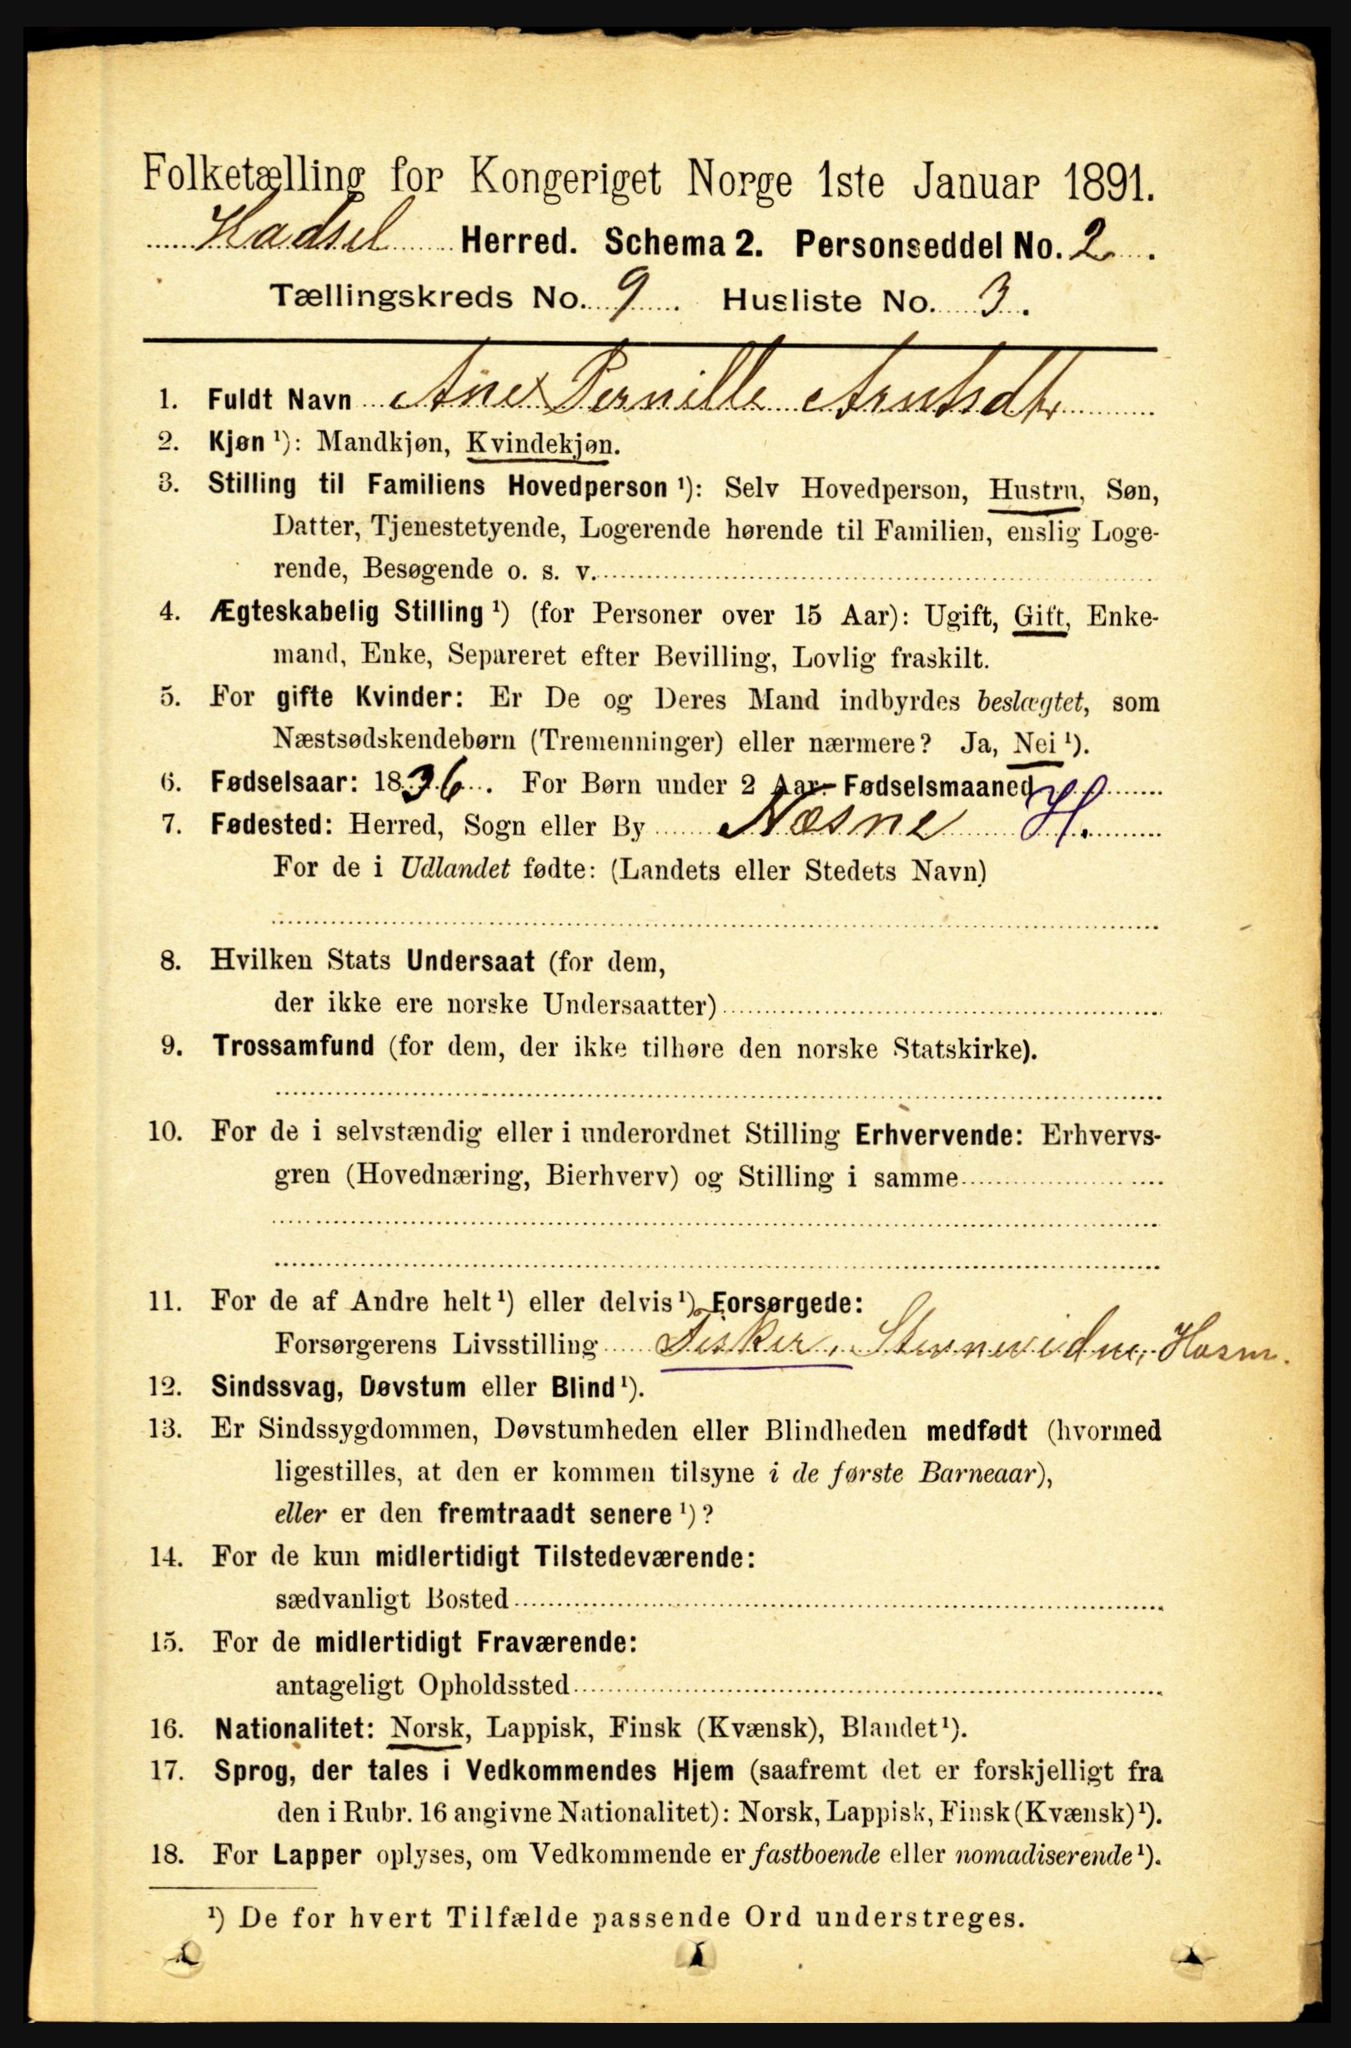 Folketælling for Kongeriget Norge 1ste Januar 1891.
Hadsel Herred. Schema 2. Personseddel No. 2.
Tællingskreds No. 9. Husliste No. 3.
1. Fuldt Navn Ane Pernille Arntsdtr
2. Kjøn ¹): Mandkjøn, Kvindekjøn.
3. Stilling til Familiens Hovedperson ¹): Selv Hovedperson, Hustru, Søn,
Datter, Tjenestetyende, Logerende hørende til Familien, enslig Loge-
rende, Besøgende o. s. v.
4. Ægteskabelig Stilling ¹) (for Personer over 15 Aar): Ugift, Gift, Enke-
mand, Enke, Separeret efter Bevilling, Lovlig fraskilt.
5. For gifte Kvinder: Er De og Deres Mand indbyrdes beslægtet, som
Næstsødskendebørn (Tremenninger) eller nærmere? Ja, Nei ¹).
6. Fødselsaar: 1836. For Børn under 2 Aar: Fødselsmaaned
7. Fødested: Herred, Sogn eller By Næsne H.
For de i Udlandet fødte: (Landets eller Stedets Navn)
8. Hvilken Stats Undersaat (for dem,
der ikke ere norske Undersaatter)
9. Trossamfund (for dem, der ikke tilhøre den norske Statskirke).
10. For de i selvstændig eller i underordnet Stilling Erhvervende: Erhvervs-
gren (Hovednæring, Bierhverv) og Stilling i samme
11. For de af Andre helt ¹) eller delvis ¹) Forsørgede:
Forsørgerens Livsstilling Fisker,
12. Sindssvag, Døvstum eller Blind ¹).
13. Er Sindssygdommen, Døvstumheden eller Blindheden medfødt (hvormed
ligestilles, at den er kommen tilsyne i de første Barneaar),
eller er den fremtraadt senere ¹)?
14. For de kun midlertidigt Tilstedeværende:
sædvanligt Bosted
15. For de midlertidigt Fraværende:
antageligt Opholdssted
16. Nationalitet: Norsk, Lappisk, Finsk (Kvænsk), Blandet ¹).
17. Sprog, der tales i Vedkommendes Hjem (saafremt det er forskjelligt fra
den i Rubr. 16 angivne Nationalitet): Norsk, Lappisk, Finsk (Kvænsk) ¹).
18. For Lapper oplyses, om Vedkommende er fastboende eller nomadiserende ¹).
¹) De for hvert Tilfælde passende Ord understreges.